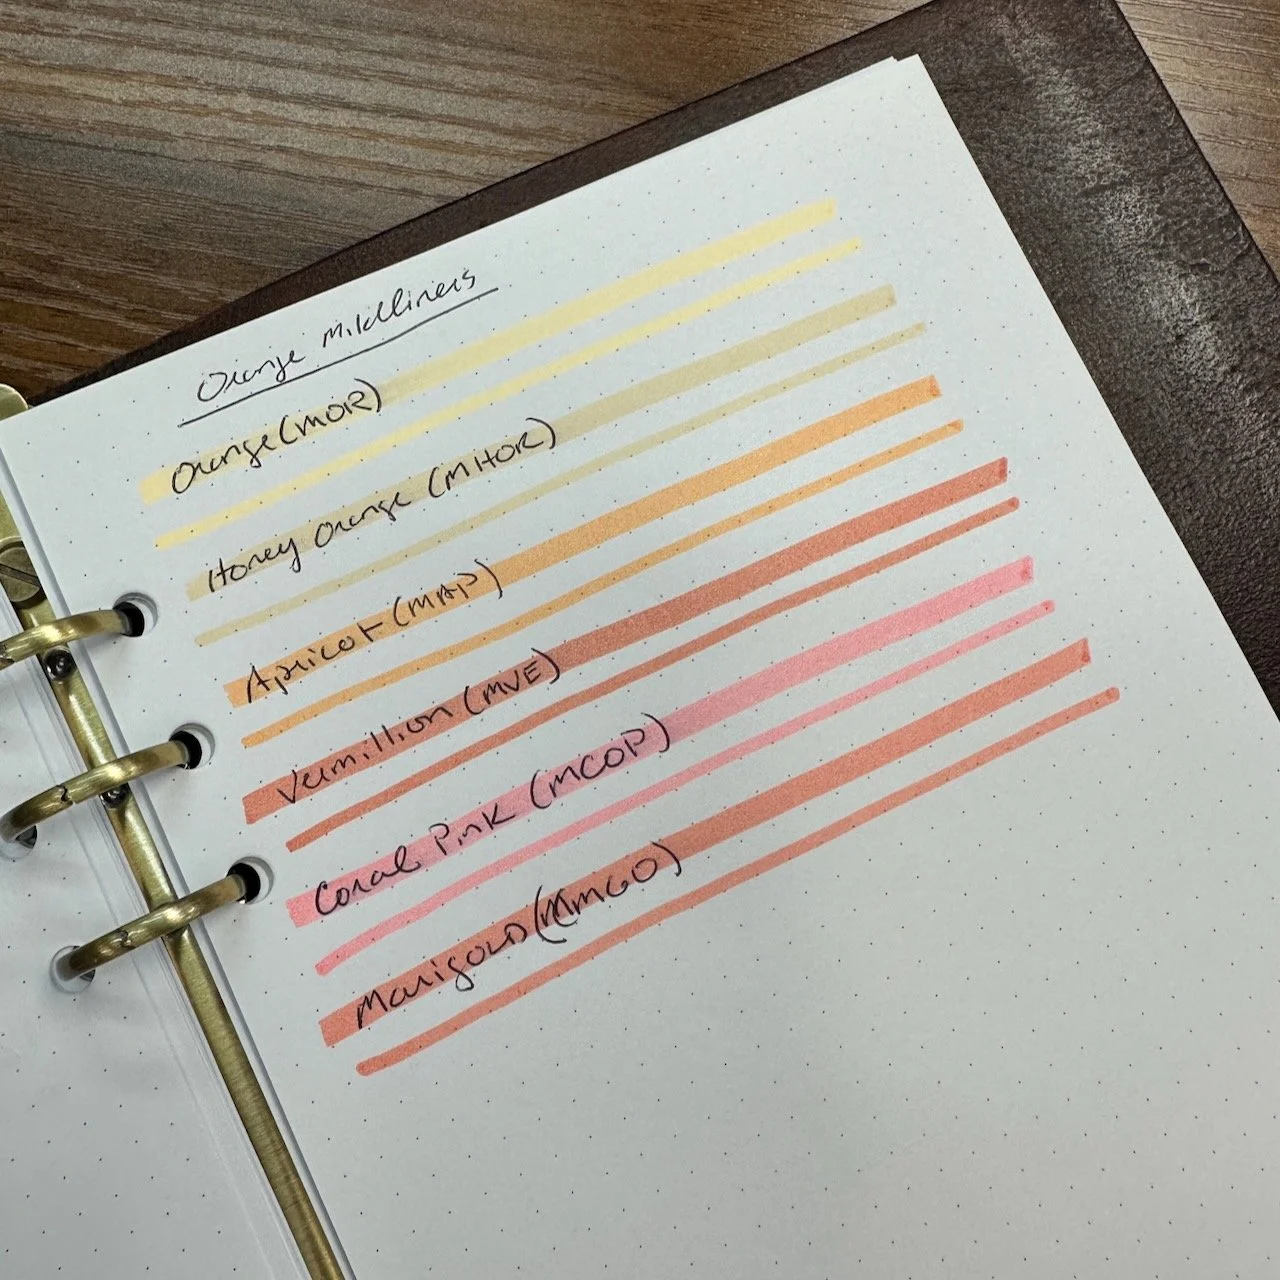 Orange Mildliners
Orange (MOR)
Honey Orange (MHOR)
Apricot (MAP)
Vermillion (MVE)
Coral Pink (MCOP)
Marigold (MMGO)